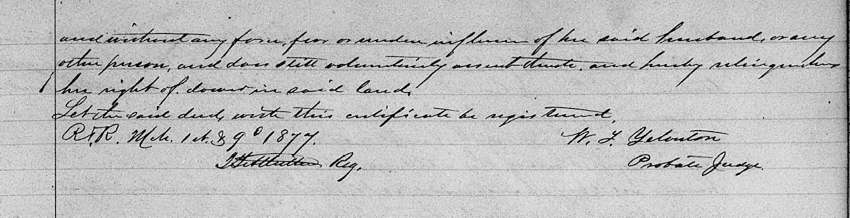 and without any force, fear or undue influence of her said husband, or any
other person, and does still voluntarily assent thereto, and hereby relinquishes
her right of dower in said land.
Let the said deed, with this certificate be registered.
R.&R. Mch. 1st. & 9th 1877. W. L. Yelvnton
Reg. Probate Judge